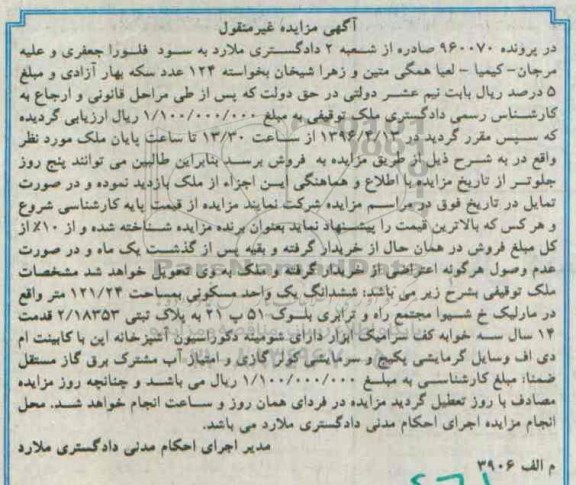 آگهی مزایده غیرمنقول
در پرونده ۹۶۰۰۷۰ صادره از شعبه ۲ دادگستری ملارد به سود فلورا جعفری و علیه
مرجان- کیمیا - لعیا همگی متین و زهرا شیخان بخواسته ۱۲۴ عدد سکه بهار آزادی و مبلغ
۵ درصد ریال بابت نیم عشر دولتی در حق دولت که پس از طی مراحل قانونی و ارجاع به
کارشناس رسمی دادگستری ملک توقیفی به مبلغ ۱/۱۰۰/۰۰۰/۰۰۰ ریال ارزیابی گردیده
که سپس مقرر گردید در ۱۳۹۶/۴/۱۳ از ساعت ۱۳/۳۰ تا ساعت پایان ملک مورد نظر
واقع در به شرح ذیل از طریق مزایده به فروش برسد بنابراین طالبین می توانند پنج روز
جلوتر از تاریخ مزایده با اطلاع و هماهنگی این اجراء از ملک بازدید نموده و در صورت
تمایل در تاریخ فوق در مراسم مزایده شرکت نمایند مزایده از قیمت پایه کارشناسی شروع
و هر کس که بالاترین قیمت را پیشنهاد نماید بعنوان برنده مزایده شناخته شده و از ۱۰٪ از
کل مبلغ فروش در همان حال از خریدار گرفته و بقیه پس از گذشت یک ماه و در صورت
عدم وصول هرگونه اعتراضی از خریدار گرفته و ملک به وی تحویل خواهد شد مشخصات
ملک توقیفی بشرح زیر می باشد: ششدانگ یک واحد مسکونی بمساحت ۱۲۱/۲۴ متر واقع
در مارلیک خ شیوا مجتمع راه و ترابری بلوک ۵۱ پ ۲۱ به پلاک ثبتی ۲/۱۸۳۵۳ قدمت
۱۴ سال سه خوابه کف سرامیک ابزار دارای شومینه دکوراسیون آشپزخانه این با کابینت ام
دی اف وسایل گرمایشی پکیج و سرمایشی کولر گازی و امتیاز آب مشترک برق گاز مستقل
ضمنا: مبلغ کارشناسی به مبلغ ۱/۱۰۰/۰۰۰/۰۰۰ ریال می باشد و چنانچه روز مزایده
مصادف با روز تعطیل گردید مزایده در فردای همان روز و ساعت انجام خواهد شد. محل
انجام مزایده اجرای احکام مدنی دادگستری ملارد می باشد.
مدیر اجرای احکام مدنی دادگستری ملارد
م الف ۳۹۰۶